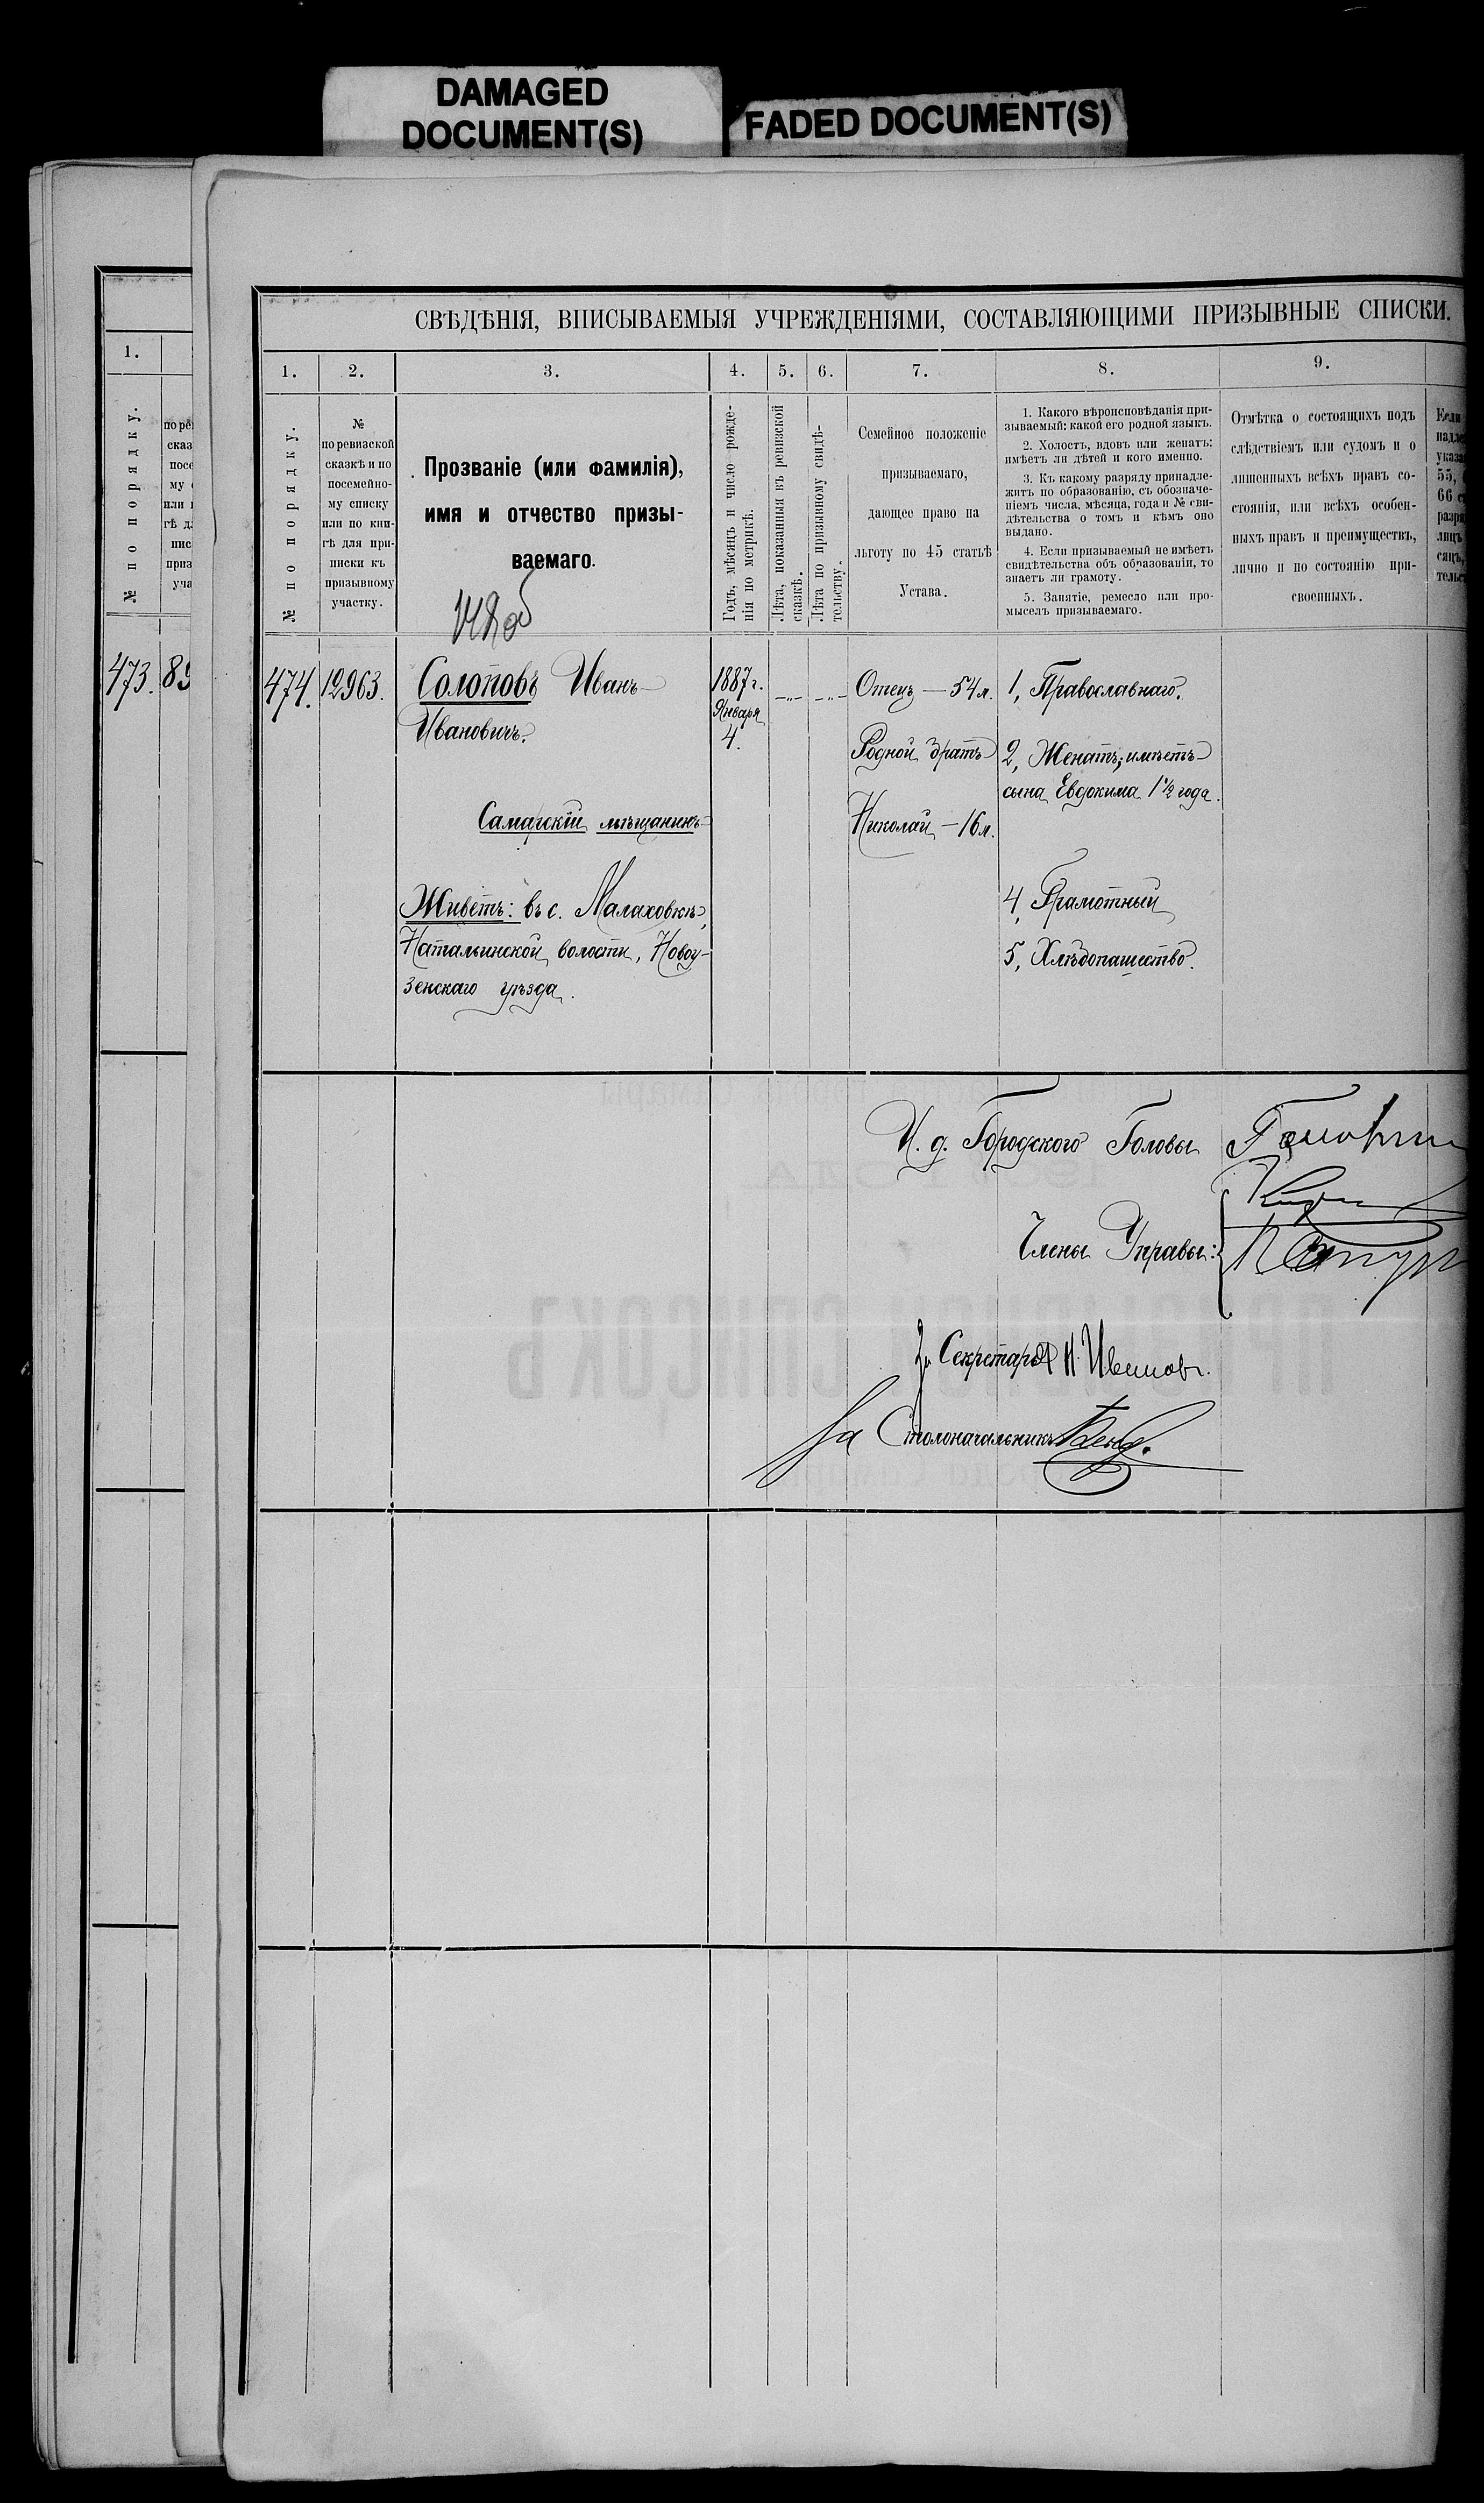 DAMAGED
DOCUMENT(S)
FADED DOCUMENT(S)
СВѢДѢНІЯ, ВПИСЫВАЕМЫЯ УЧРЕЖДЕНІЯМИ, СОСТАВЛЯЮЩИМИ ПРИЗЫВНЫЕ СПИСКИ.
1.
1. 2. 3. 4. 5. 6. 7. 8. 9.
№ по порядку.
№ по порядку.
№
по ревизской
сказкѣ и по
посемейно-
му списку
или по кни-
гѣ для при-
писки къ
призывному
участку.
Прозваніе (или фамилія),
имя и отчество призы-
ваемаго.
Годъ, мѣсяцъ и число рожде-
нія по метрикѣ.
Лѣта, показанныя въ ревизской
сказкѣ.
Лѣта по призывному свидѣ-
тельству.
Семейное положеніе
призываемаго,
дающее право на
льготу по 45 статьѣ
Устава.
1. Какого вѣроисповѣданія при-
зываемый: какой его родной языкъ.
2. Холостъ, вдовъ или женатъ:
имѣетъ ли дѣтей и кого именно.
3. Къ какому разряду принадле-
житъ по образованію, съ обозначе-
ніемъ числа, мѣсяца, года и № сви-
дѣтельства о томъ и кѣмъ оно
выдано.
4. Если призываемый не имѣетъ
свидѣтельства объ образованіи, то
знаетъ ли грамоту.
5. Занятіе, ремесло или про-
мыселъ призываемаго.
Отмѣтка о состоящихъ подъ
слѣдствіемъ или судомъ и о
лишенныхъ всѣхъ правъ со-
стоянія, или всѣхъ особен-
ныхъ правъ и преимуществъ,
лично и по состоянію при-
своенныхъ.
473.
474. 12963. Солоповъ Иванъ
Ивановичъ.
Самарскій мѣщанинъ
Живетъ: въ с. Малаховкѣ,
Натальинской волости, Новоу-
зенскаго уѣзда.
1887 г.
Января
4.
Отецъ — 54 л.
Родной братъ
Николай — 16 л.
1, Православнаго.
2, Женатъ; имѣетъ
сына Евдокима 1 1/2 года.
4, Грамотный
5, Хлѣбопашество.
И. д. Городского Головы
Члены Управы:
За Секретаря Н. Ивановъ.
За Столоначальникъ